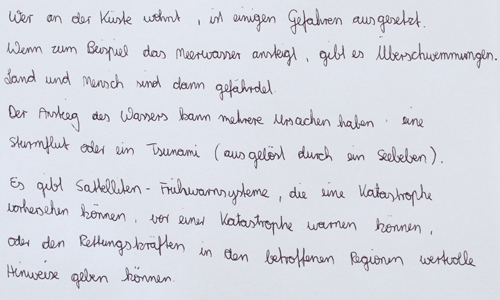 Wer an der Küste wohnt, ist einigen Gefahren ausgesetzt.
Wenn zum Beispiel das Meerwasser ansteigt, gibt es Überschwemmungen.
Land und Mensch sind dann gefährdet.
Der Anstieg des Wassers kann mehrere Ursachen haben: eine
Sturmflut oder ein Tsunami (ausgelöst durch ein Seebeben).
Es gibt Satelliten-Frühwarnsysteme, die eine Katastrophe
vorhersehen können, vor einer Katastrophe warnen können,
oder den Rettungskräften in den betroffenen Regionen wertvolle
Hinweise geben können.